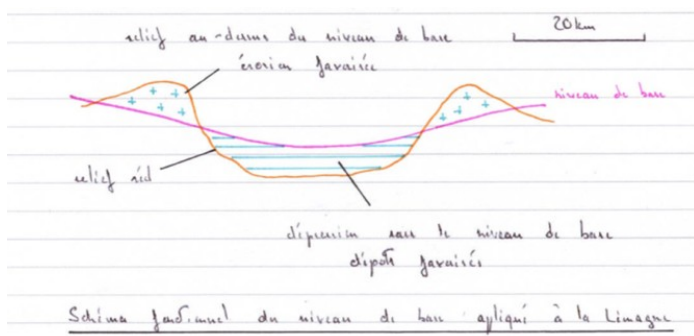 relief au-dessus du niveau de base
érosion favorisée
20 km
niveau de base
relief réel
dépression sous le niveau de base
dépôts favorisés
Schéma fonctionnel du niveau de base appliqué à la Limagne